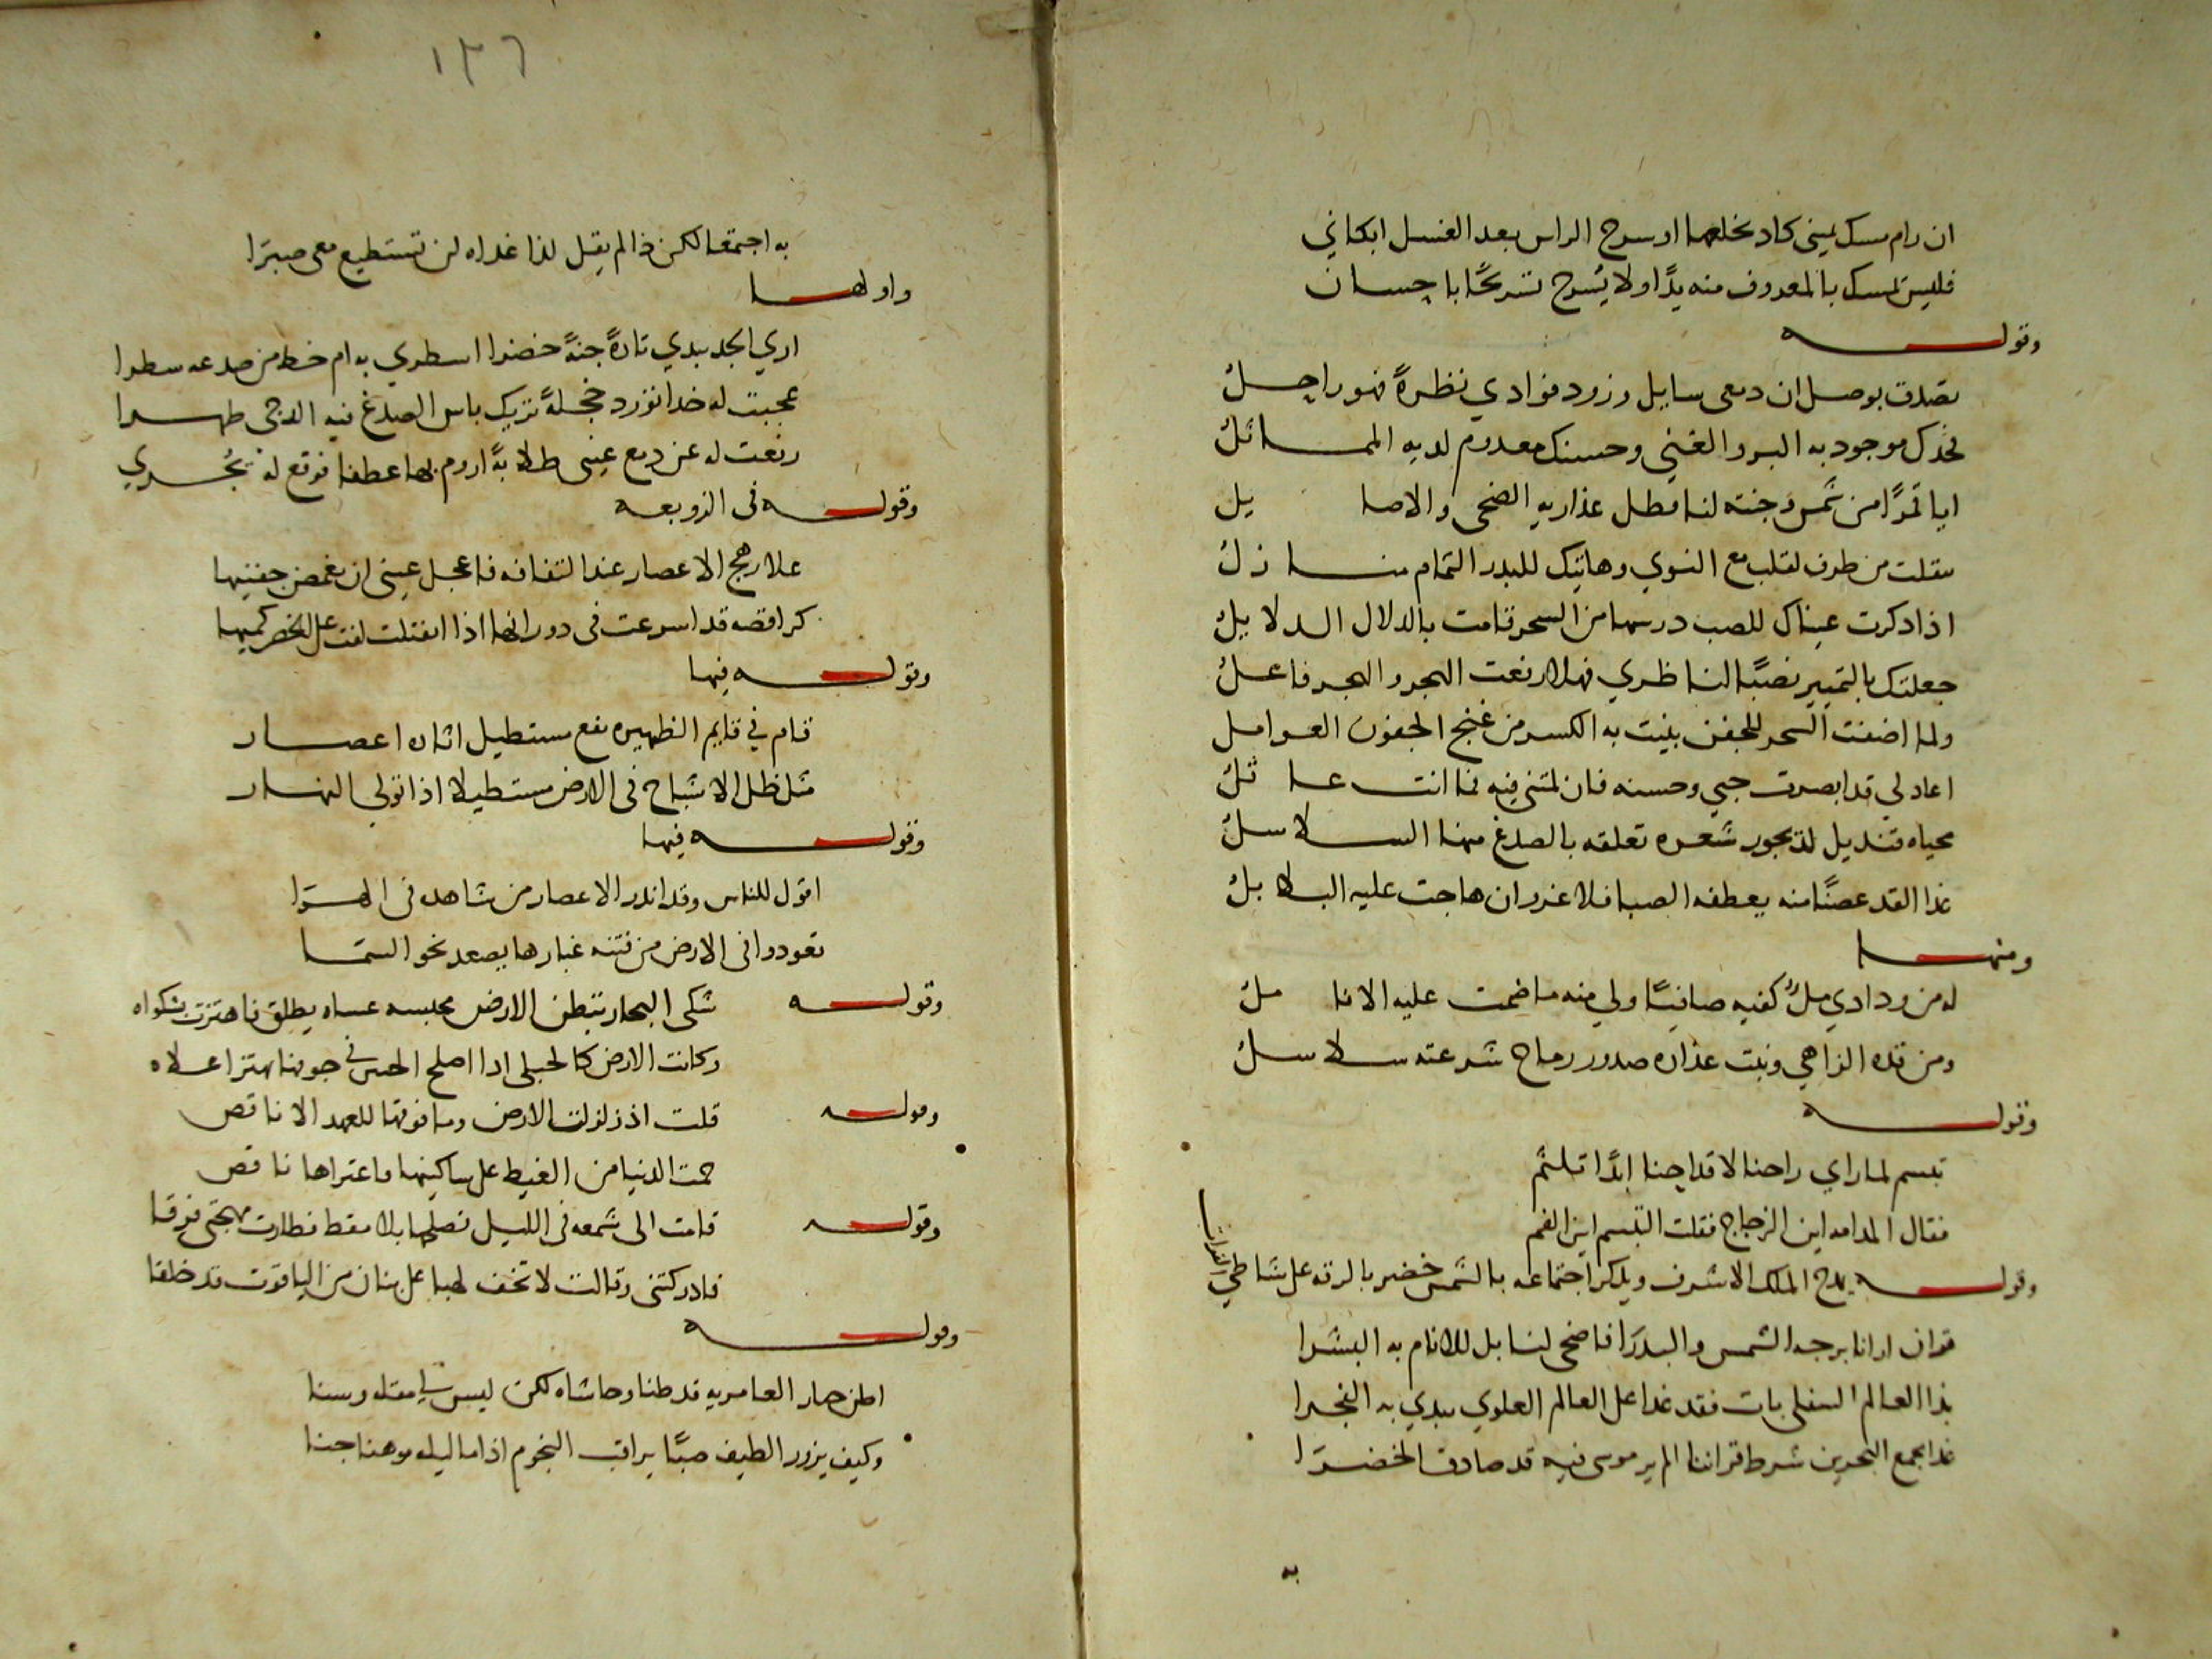 ان رام مسك يميني كاد يخلعها او سرح الراس بعد الغسل ابكاني
فليس يمسك بالمعروف منه يدًا ولا يُسرح تسريحًا باحسان
وقوله
تصدق بوصل ان دمعي سايل وزود فوادي نظرةً فهو راحل
فخدك موجود به البر والغنى وحسنك معدوم لديه المماثل
ايا قمرًا من شمس وجنته لنا وظل عذاريه الضحى والاصايل
تنقلت من طرف لقلب مع النوى وهاتيك للبدر التمام منازل
اذا ذكرت عيناك للصب درسها من السحر قامت بالدلال الدلايل
جعلتك بالتمييز نصبًا لناظري فهلا رفعت الهجر والهجر فاعل
ولما اضفت السحر للجفن بنيت به الكسر من غنج الجفون العوامل
اعاذلي قد ابصرت حبي وحسنه فان لمتني فيه فما انت عاقل
محياه قنديل لديجور شعره تعلقه بالصدغ منها السلاسل
غدا القد غصنًا منه يعطفه الصبا فلا غرو ان هاجت عليه البلابل
ومنها
له من ودادي ملُ كفيه صافيًا ولي منه ما ضمت عليه الانامل
ومن قده الزاهي ونبت عذاره صدور رماح شرعته سلاسل
وقوله
تبسم لما راي راحنا لاقداحنا ابدًا تلثم
فقال المدامه اين الزجاج فقلت التبسم اين الفم
وقوله يمدح الملك الاشرف ويذكر اجتماعه بالشمس خضر بالرقه على شاطي الفرات
قران ارانا برجه الشمس والبدرا فاضحى لنا بل للانام به البشرا
بذا العالم السفلي بات فقد غدا على العالم العلوي يبدي به الفخرا
غدا بجمع البحرين شرط قراننا الم ير موسى فيه قد صادف الخضرا
به
١٣٦
به اجتمعا لكن ذا لم يقل لذا غداه لن تستطيع معي صبرا
واولها
اري الخد يبدي نارهً جنةً خضرا اسطري به ام خط من صدغه سطرا
عجبت له خدا تورد خجلةً يريك باس الصدغ فيه الدجى ظهرا
رفعت له عن دمع عيني طلابةً اروم بها عطفا فوقع له يُجري
وقوله في الزوبعه
علا رهج الاعصار عند التفافه فاعجل عيني ان تغمض جفنيها
كراقصه قد اسرعت في دورانها اذا انفتلت لفت على الخصر كميها
وقوله فيها
قام في قايم الظهيره نقع مستطيل اثاره اعصار
مثل ظل الاشباح في الارض مستطيلا اذا تولى النهار
وقوله فيها
اقول للناس وقد انذر الاعصار من شاهد في الهوا
تعودوا في الارض من فتنه غبارها يصعد نحو السما
وقوله شكى البخار ببطن الارض محبسه عساه يطلق فاهتزت بشكواه
وكانت الارض كالحبلى اذا اصلح الجنين في جوفها تهتز اعلاه
وقوله قلت اذ زلزلت الارض وما فوقها للعهد الا ناقص
حمت الدنيا من الغيظ على ساكنيها واعتراها نافض
وقوله قامت الى شمعه في الليل تصلحها بلا مقط فطارت مهجتي فرقا
فادركتني وقالت لا تخف لهبا على بنان من الياقوت قد خلقا
وقوله
اظن مزار العامريه قد ظنا وحاشاه لكن ليس لي مقله وسنا
وكيف يزور الطيف صبًا يراقب النجوم اذا ما ليله موهنا جنا